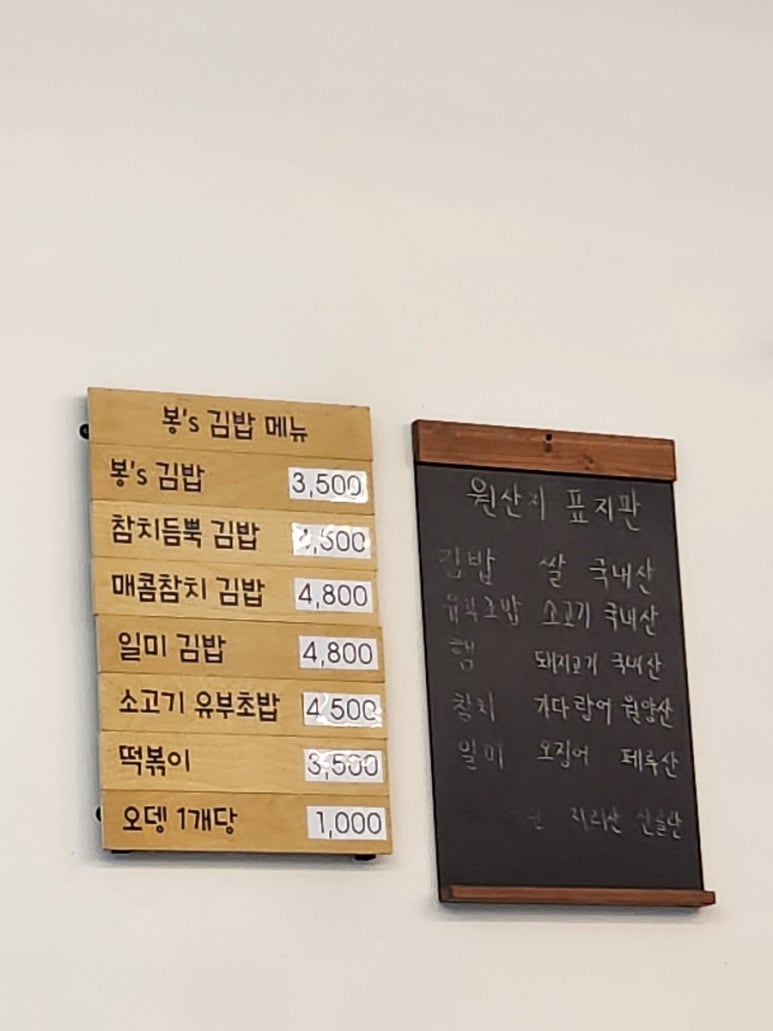 봉's 김밥 메뉴
봉's 김밥 3,500
참치듬뿍 김밥 4,500
매콤참치 김밥 4,800
일미 김밥 4,800
소고기 유부초밥 4,500
떡볶이 3,500
오뎅 1개당 1,000
원산지 표지판
김밥 쌀 국내산
유부초밥 소고기 국내산
햄 돼지고기 국내산
참치 가다랑어 원양산
일미 오징어 페루산
지리산